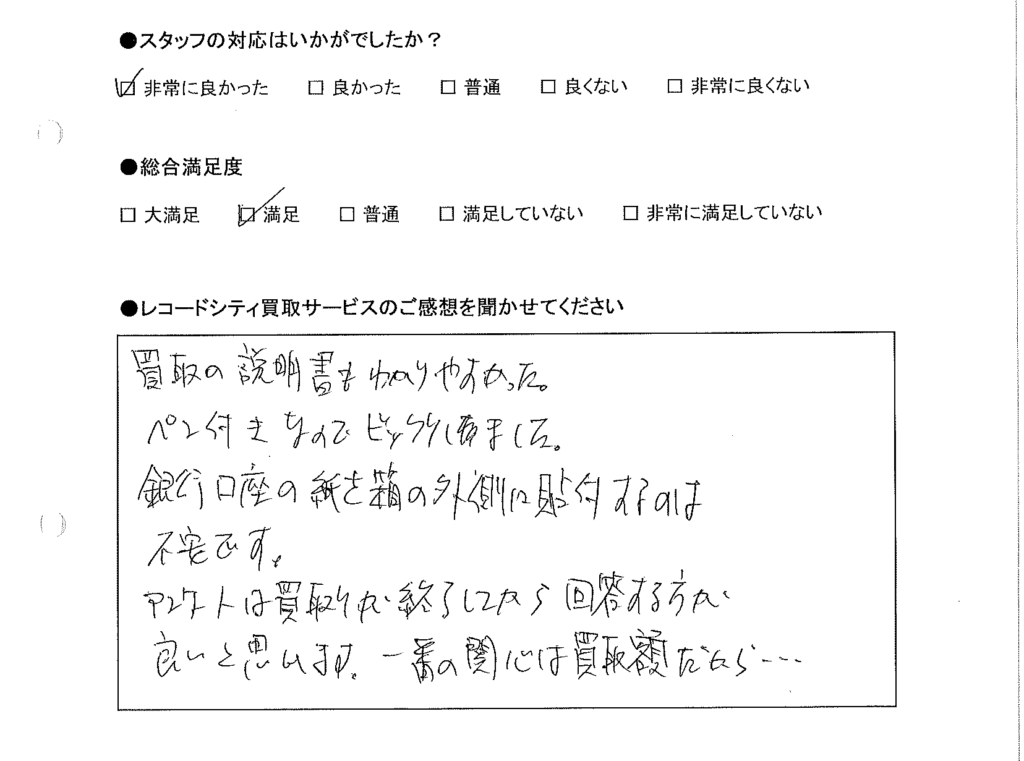 ●スタッフの対応はいかがでしたか？
☑ 非常に良かった □ 良かった □ 普通 □ 良くない □ 非常に良くない
●総合満足度
□ 大満足 ☑ 満足 □ 普通 □ 満足していない □ 非常に満足していない
●レコードシティ買取サービスのご感想を聞かせてください
買取の説明書もわかりやすかった。
ペン付きなのでビックリしました。
銀行口座の紙を箱の外側に貼付するのは
不安です。
アンケートは買取りが終了してから回答する方が
良いと思います。一番の関心は買取額だから…